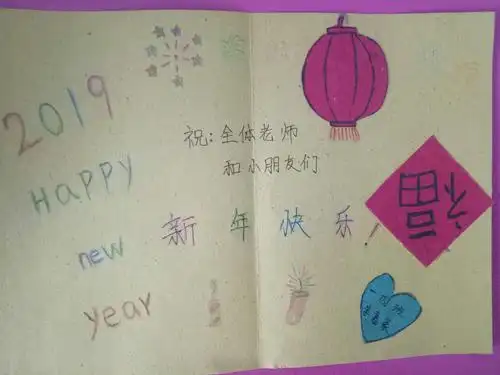 2019
HAPPY
new
year
祝:全体老师
和小朋友们
新年快乐!
福